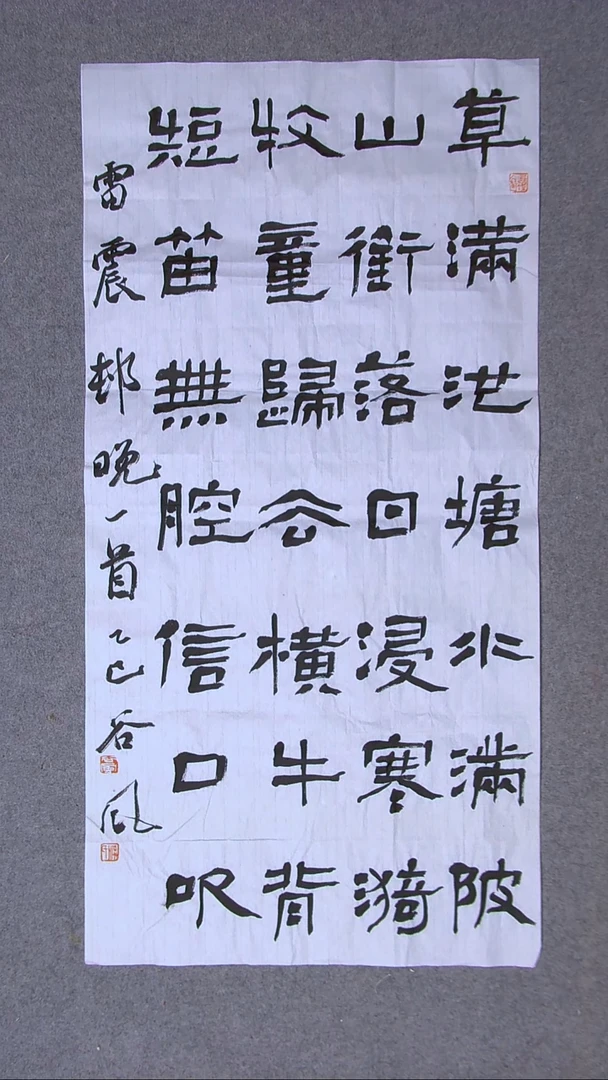 草滿池塘水滿陂
山銜落日浸寒漪
牧童歸去橫牛背
短笛無腔信口吹
雷震 邨晚一首 乙巳 谷风